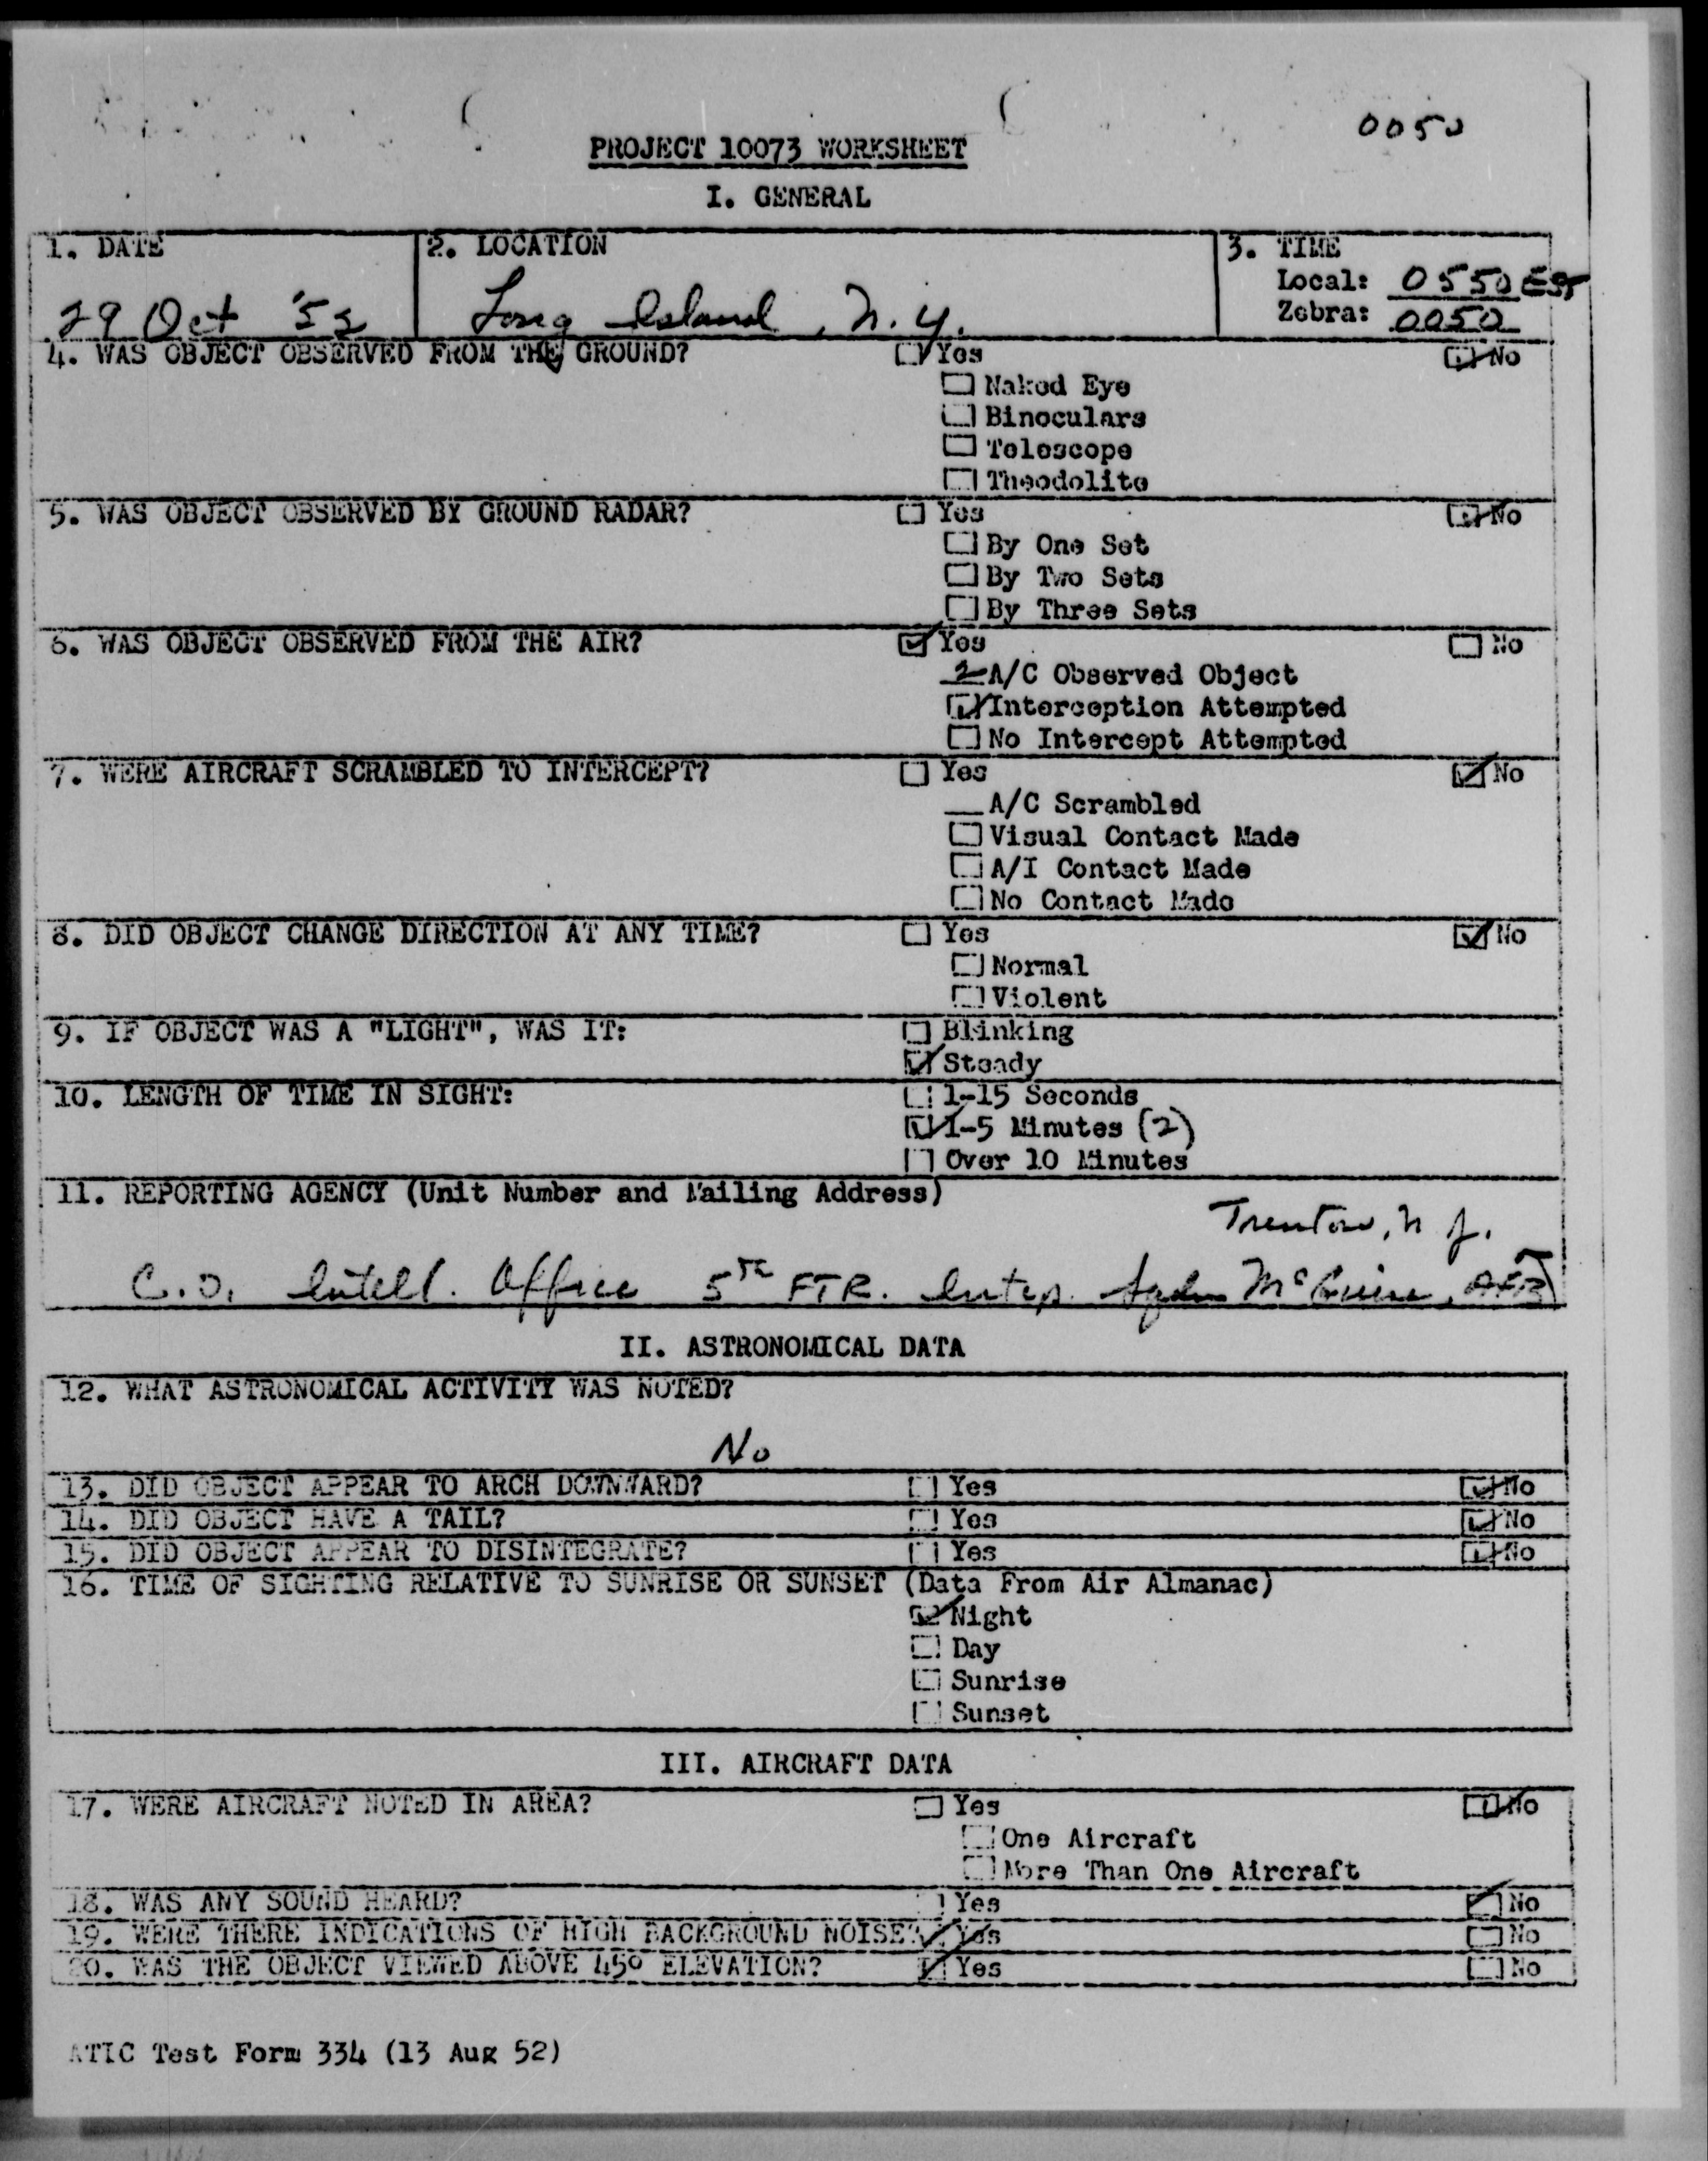 0050
PROJECT 10073 WORKSHEET
I. GENERAL
1. DATE
29 Oct '52
2. LOCATION
Long Island, N.Y.
3. TIME
Local: 0550 EST
Zebra: 0050
4. WAS OBJECT OBSERVED FROM THE GROUND? Yes No
Naked Eye
Binoculars
Telescope
Theodolite
5. WAS OBJECT OBSERVED BY GROUND RADAR? Yes No
By One Set
By Two Sets
By Three Sets
6. WAS OBJECT OBSERVED FROM THE AIR? Yes No
2 A/C Observed Object
Interception Attempted
No Intercept Attempted
7. WERE AIRCRAFT SCRAMBLED TO INTERCEPT? Yes No
A/C Scrambled
Visual Contact Made
A/I Contact Made
No Contact Made
8. DID OBJECT CHANGE DIRECTION AT ANY TIME? Yes No
Normal
Violent
9. IF OBJECT WAS A "LIGHT", WAS IT: Blinking
Steady
10. LENGTH OF TIME IN SIGHT: 1-15 Seconds
1-5 Minutes (2)
Over 10 Minutes
11. REPORTING AGENCY (Unit Number and Mailing Address)
Trenton, N J.
C.O. Intell. Office 5th FTR. Intcp. Sqdn McGuire, AFB
II. ASTRONOMICAL DATA
12. WHAT ASTRONOMICAL ACTIVITY WAS NOTED?
No
13. DID OBJECT APPEAR TO ARCH DOWNWARD? Yes No
14. DID OBJECT HAVE A TAIL? Yes No
15. DID OBJECT APPEAR TO DISINTEGRATE? Yes No
16. TIME OF SIGHTING RELATIVE TO SUNRISE OR SUNSET (Data From Air Almanac)
Night
Day
Sunrise
Sunset
III. AIRCRAFT DATA
17. WERE AIRCRAFT NOTED IN AREA? Yes No
One Aircraft
More Than One Aircraft
18. WAS ANY SOUND HEARD? Yes No
19. WERE THERE INDICATIONS OF HIGH BACKGROUND NOISE? Yes No
20. WAS THE OBJECT VIEWED ABOVE 45° ELEVATION? Yes No
ATIC Test Form 334 (13 Aug 52)